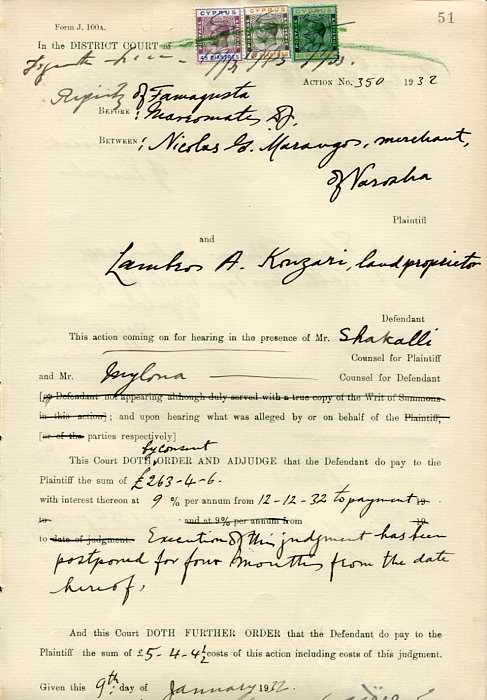 51
Form J. 100A.
CYPRUS CYPRUS CYPRUS
In the DISTRICT COURT of
ACTION No. 350 1932
of Famagusta
BEFORE:
BETWEEN: Nicolas G. Marangos, merchant,
of Varosha
Plaintiff
and
Lambros A. Kouzari, land proprietor
Defendant
This action coming on for hearing in the presence of Mr. Shakalli
Counsel for Plaintiff
and Mr. Mylona Counsel for Defendant
[or Defendant not appearing although duly served with a true copy of the Writ of Summons
in this action]; and upon hearing what was alleged by or on behalf of the Plaintiff,
[or of the parties respectively]
by consent
This Court DOTH ORDER AND ADJUDGE that the Defendant do pay to the
Plaintiff the sum of £263-4-6.
with interest thereon at 9 % per annum from 12-12-32 to payment 19
to and at 9% per annum from 19
to date of judgment. Execution of this judgment has been
postponed for four months from the date
hereof.
And this Court DOTH FURTHER ORDER that the Defendant do pay to the
Plaintiff the sum of £5-4-4½ costs of this action including costs of this judgment.
Given this 9th day of January 19